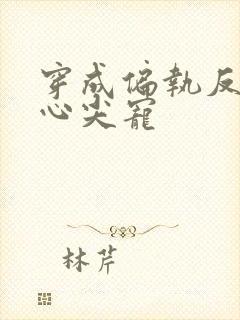 穿成偏執反
心尖寵
林芹